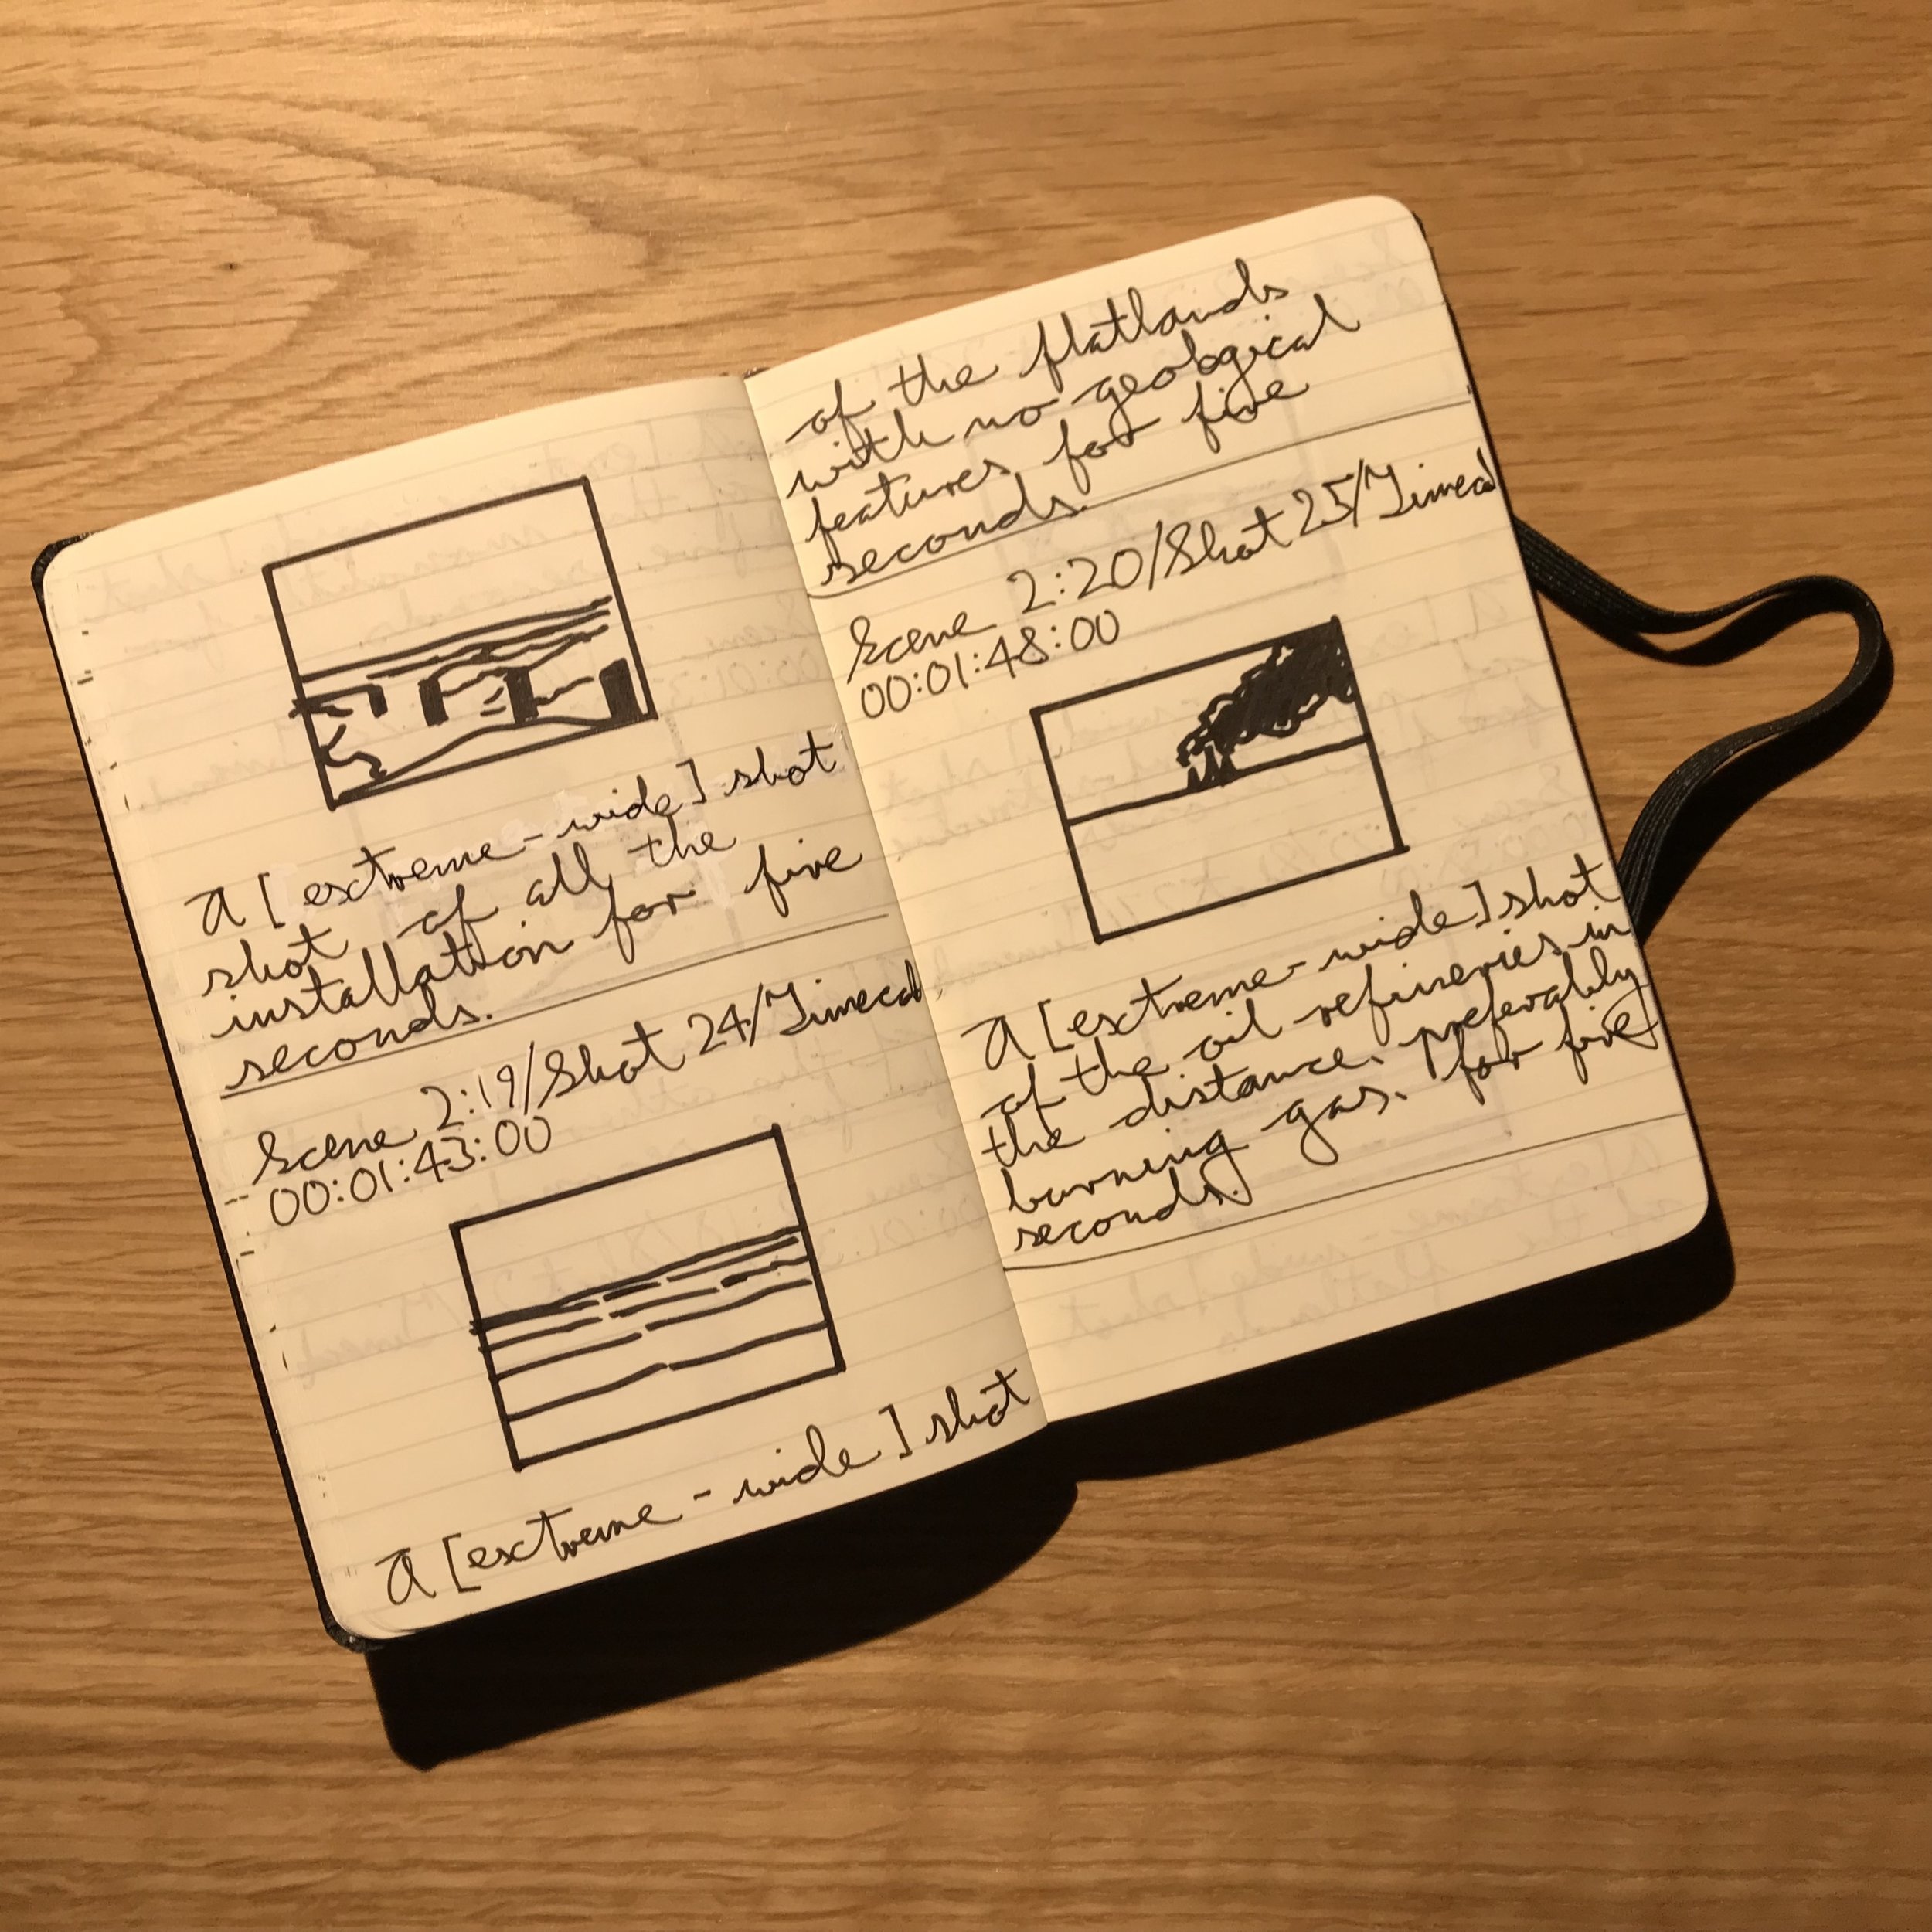 A [extreme-wide] shot
shot of all the
installation for five
seconds.
Scene 2:19/Shot 24/Timecod
00:01:43:00
A [extreme-wide] shot
of the flatlands
with no geological
features for five
seconds.
Scene 2:20/Shot 25/Timecod
00:01:48:00
A [extreme-wide] shot
of the oil refineries in
the distance. preferably
burning gas. for five
seconds.